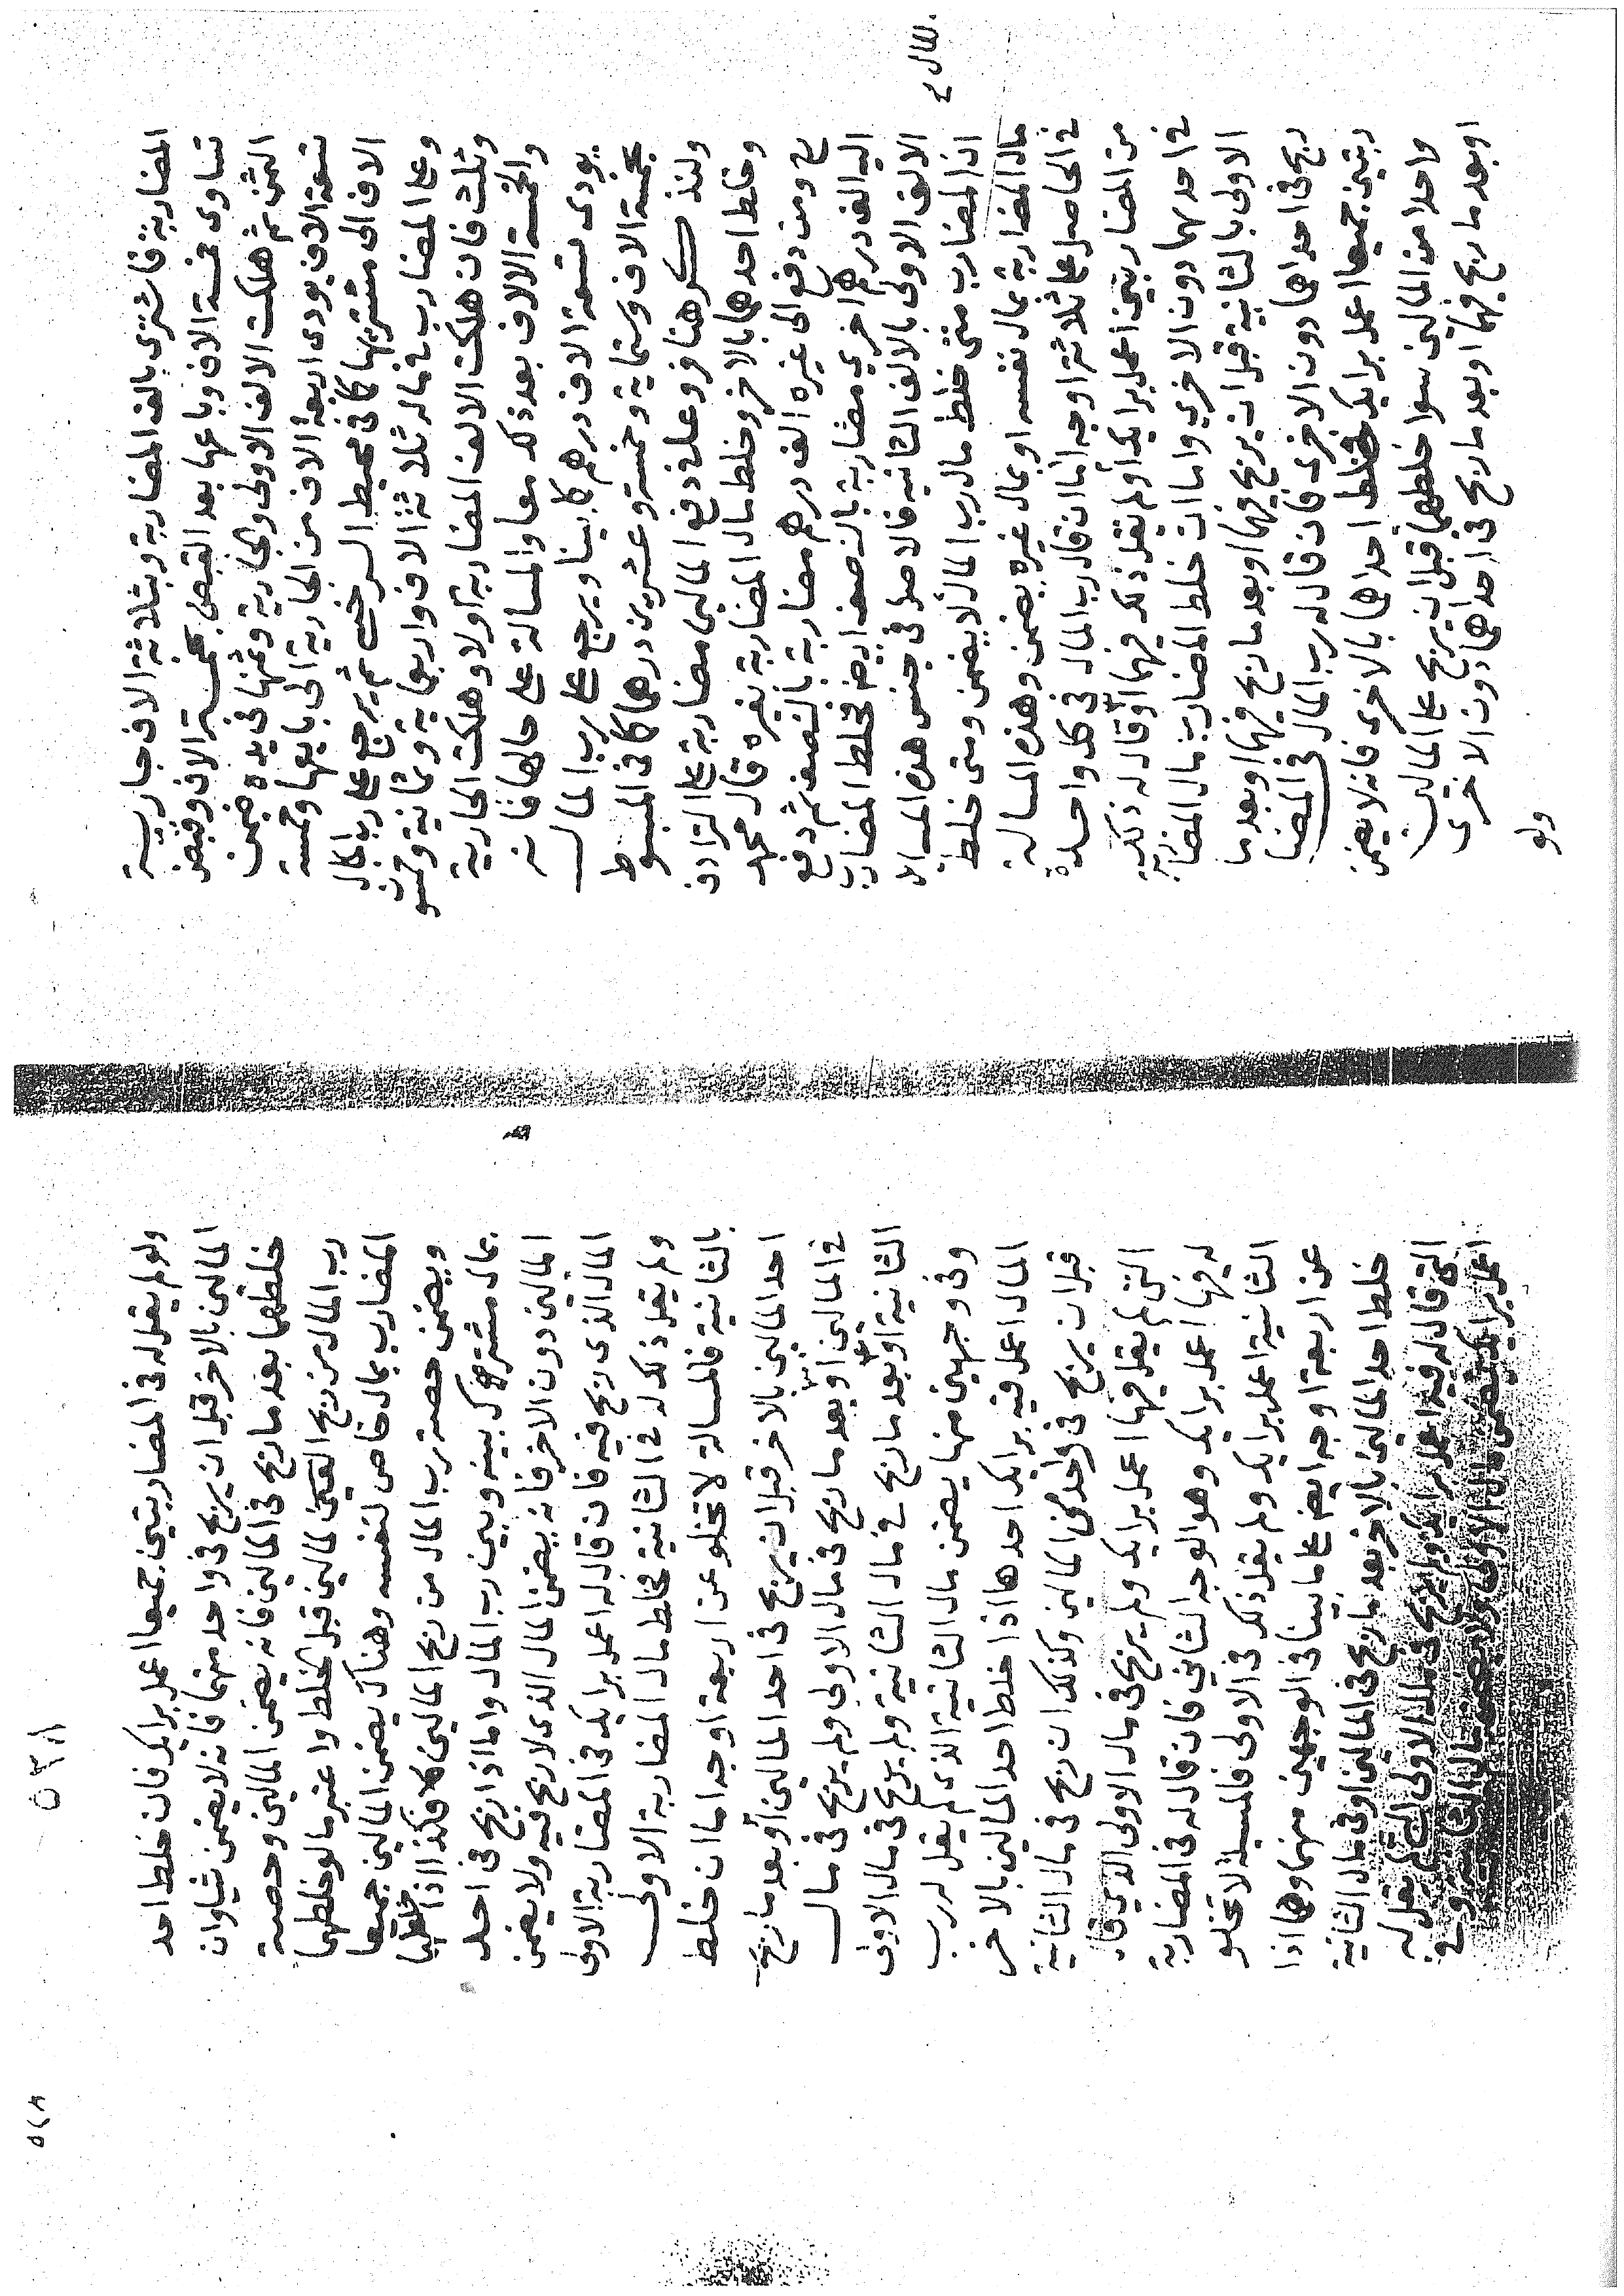 المضاربة فاشترى بالف المضاربة وبثلاثة الاف جارية
تساوى خمسة الاف وباعها بعد القبض بخمسة الاف وقبض
الثمن ثم هلكت الالف الاولى والجارية وثمنها فى يده ضمن
تسعة الاف يودى اربعة الاف من الجارية الى بايعها وخمسة
الاف الى مشتريها كما فى محيط السرخسى ثم يرجع على رب المال
وعلى المضارب فى ماله ثلاثة الاف واربعماية وثمانية وخمسو
وثلث فان هلكت الالف المضاربة اولا وهلكت الجارية
والخمسة الالاف بعد ذلك معا والمسالة على حالها فانه
يودى تسعة الاف درهم كما بينا ويرجع على رب المال
بخمسة الاف وستماية وخمسة وعشرين درهما كما فى المبسوط
ولنذكر هنا فروعا فى دفع المالين مضاربة على الترادف
وخلط احدهما بالاخر وخلط مال المضاربة بغيره قال محمد
رح ومن دفع الى غيره الف درهم مضاربة بالنصف ثم دفع
اليه الف درهم اخرى مضاربة بالنصف ايضا فخلط المضارب
الالف الاولى بالالف الثانية فالاصل فى جنس هذه المسايل
ان المضارب متى خلط مال رب المال لا يضمن ومتى خلط
مال المضاربة بمال نفسه او بمال غيره يضمن وهذه المسالة
فى الحاصل على ثلاثة اوجه اما ان قال رب المال فى كل واحدة
من المضاربتين اعمل برايك او لم يقل ذلك فيهما او قال له ذلك
فى احديهما دون الاخرى واما ان خلط المضارب مال المضاربة
الاولى بالثانية قبل ان يربح فيهما او بعد ما ربح فيهما او بعد ما
ربح فى احداهما دون الاخرى فان قال له رب المال فى المضا
ربتين جميعا اعمل برايك فخلط احداهما بالاخرى فانه لا يضمن
واحدا من المالين سوا خلطهما قبل ان يربح على المالين
او بعد ما ربح فيهما او بعد ما ربح فى احداهما دون الاخرى
ولو
المال
٥٣٨
ولو لم يقل له فى المضاربتين جميعا اعمل برايك فان خلط احد
المالين بالاخر قبل ان يربح فى واحد منهما فانه لا يضمن شيا وان
خلطهما بعد ما ربح فى المالين فانه يضمن المالين وحصة
رب المال من ربح المالين قبل الخلط واعتبر ما لو خلطهما
المضارب بمال خاص لنفسه وهناك يضمن المالين جميعا
ويضمن حصة رب المال من ربح المالين فكذا اذا خلطهما
بمال مشترك بينه وبين رب المال واما اذا ربح فى احد
المالين دون الاخر فانه يضمن المال الذى لا ربح فيه ولا يضمن
المال الذى ربح فيه فان قال له اعمل برايك فى المضاربة الاولى
ولم يقل ذلك له فى الثانية فخلط مال المضاربة الاولى
بالثانية فالمسالة لا تخلو عن اربعة اوجه اما ان خلط
احد المالين بالاخر قبل ان يربح فى احد المالين او بعد ما ربح
فى المالين او بعد ما ربح فى مال الاولى ولم يربح فى مال
الثانية او بعد ما ربح فى مال الثانية ولم يربح فى مال الاولى
وفى وجهين منها يضمن مال الثانية الذى لم يقل له رب
المال اعمل فيه برايك احدها اذا خلط احد المالين بالاخر
قبل ان يربح فى واحد من المالين وكذلك ان ربح فى مال الثانية
التى لم يقل فيها اعمل برايك ولم يربح فى مال الاولى الذى قال
له فيها اعمل برايك وهو الوجه الثانى فان قال له فى المضاربة
الثانية اعمل برايك ولم يقل ذلك فى الاولى فالمسيلة لا تخلو
عن اربعة اوجه ايضا على ما بينا فى الوجهين منهما وهما اذا
خلط احد المالين بالاخر بعد ما ربح فى المالين او فى مال الثانية
التى قال له فيها اعمل برايك ولم يربح فى مال الاولى التى لم يقل له
اعمل برايك يضمن مال الاولى ولا يضمن مال الثانية وفى